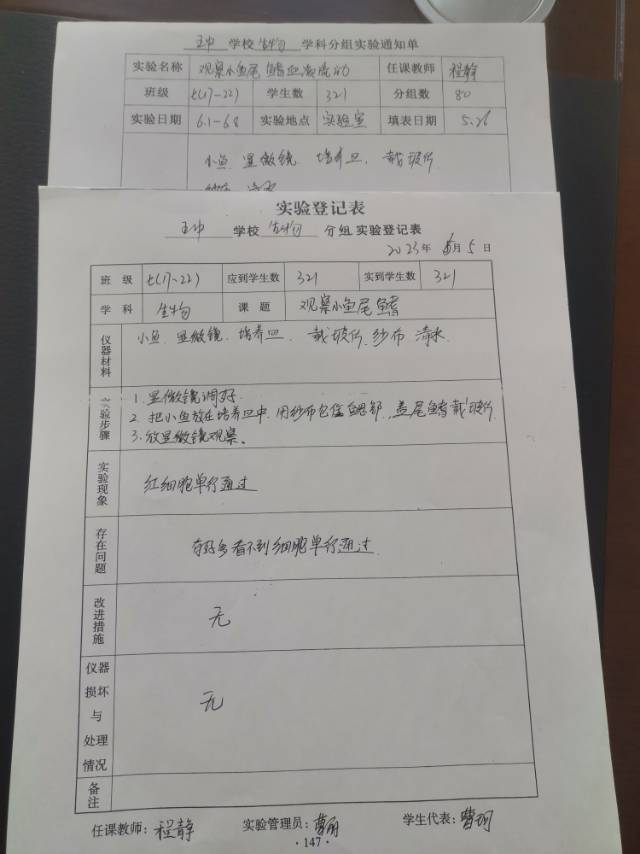 王中 学校 生物 学科分组实验通知单
实验名称 观察小鱼尾鳍血液流动 任课教师 程静
班级 七(17-22) 学生数 321 分组数 80
实验日期 6.1-6.8 实验地点 实验室 填表日期 5.26
小鱼 显微镜 培养皿、载玻片
实验登记表
王中 学校 生物 分组实验登记表
2023年 6月5日
班级 七(17-22) 应到学生数 321 实到学生数 321
学科 生物 课题 观察小鱼尾鳍
仪器材料 小鱼 显微镜、培养皿、载玻片、纱布 清水
实验步骤 1.显微镜调好.
2.把小鱼放在培养皿中、用纱布包住鱼鳃部、盖尾鳍载玻片
3.放显微镜观察。
实验现象 红细胞单行通过
存在问题 有好多看不到细胞单行通过
改进措施 无
仪器损坏与处理情况 无
备注
任课教师：程静 实验管理员：曹丽 学生代表：
·147·